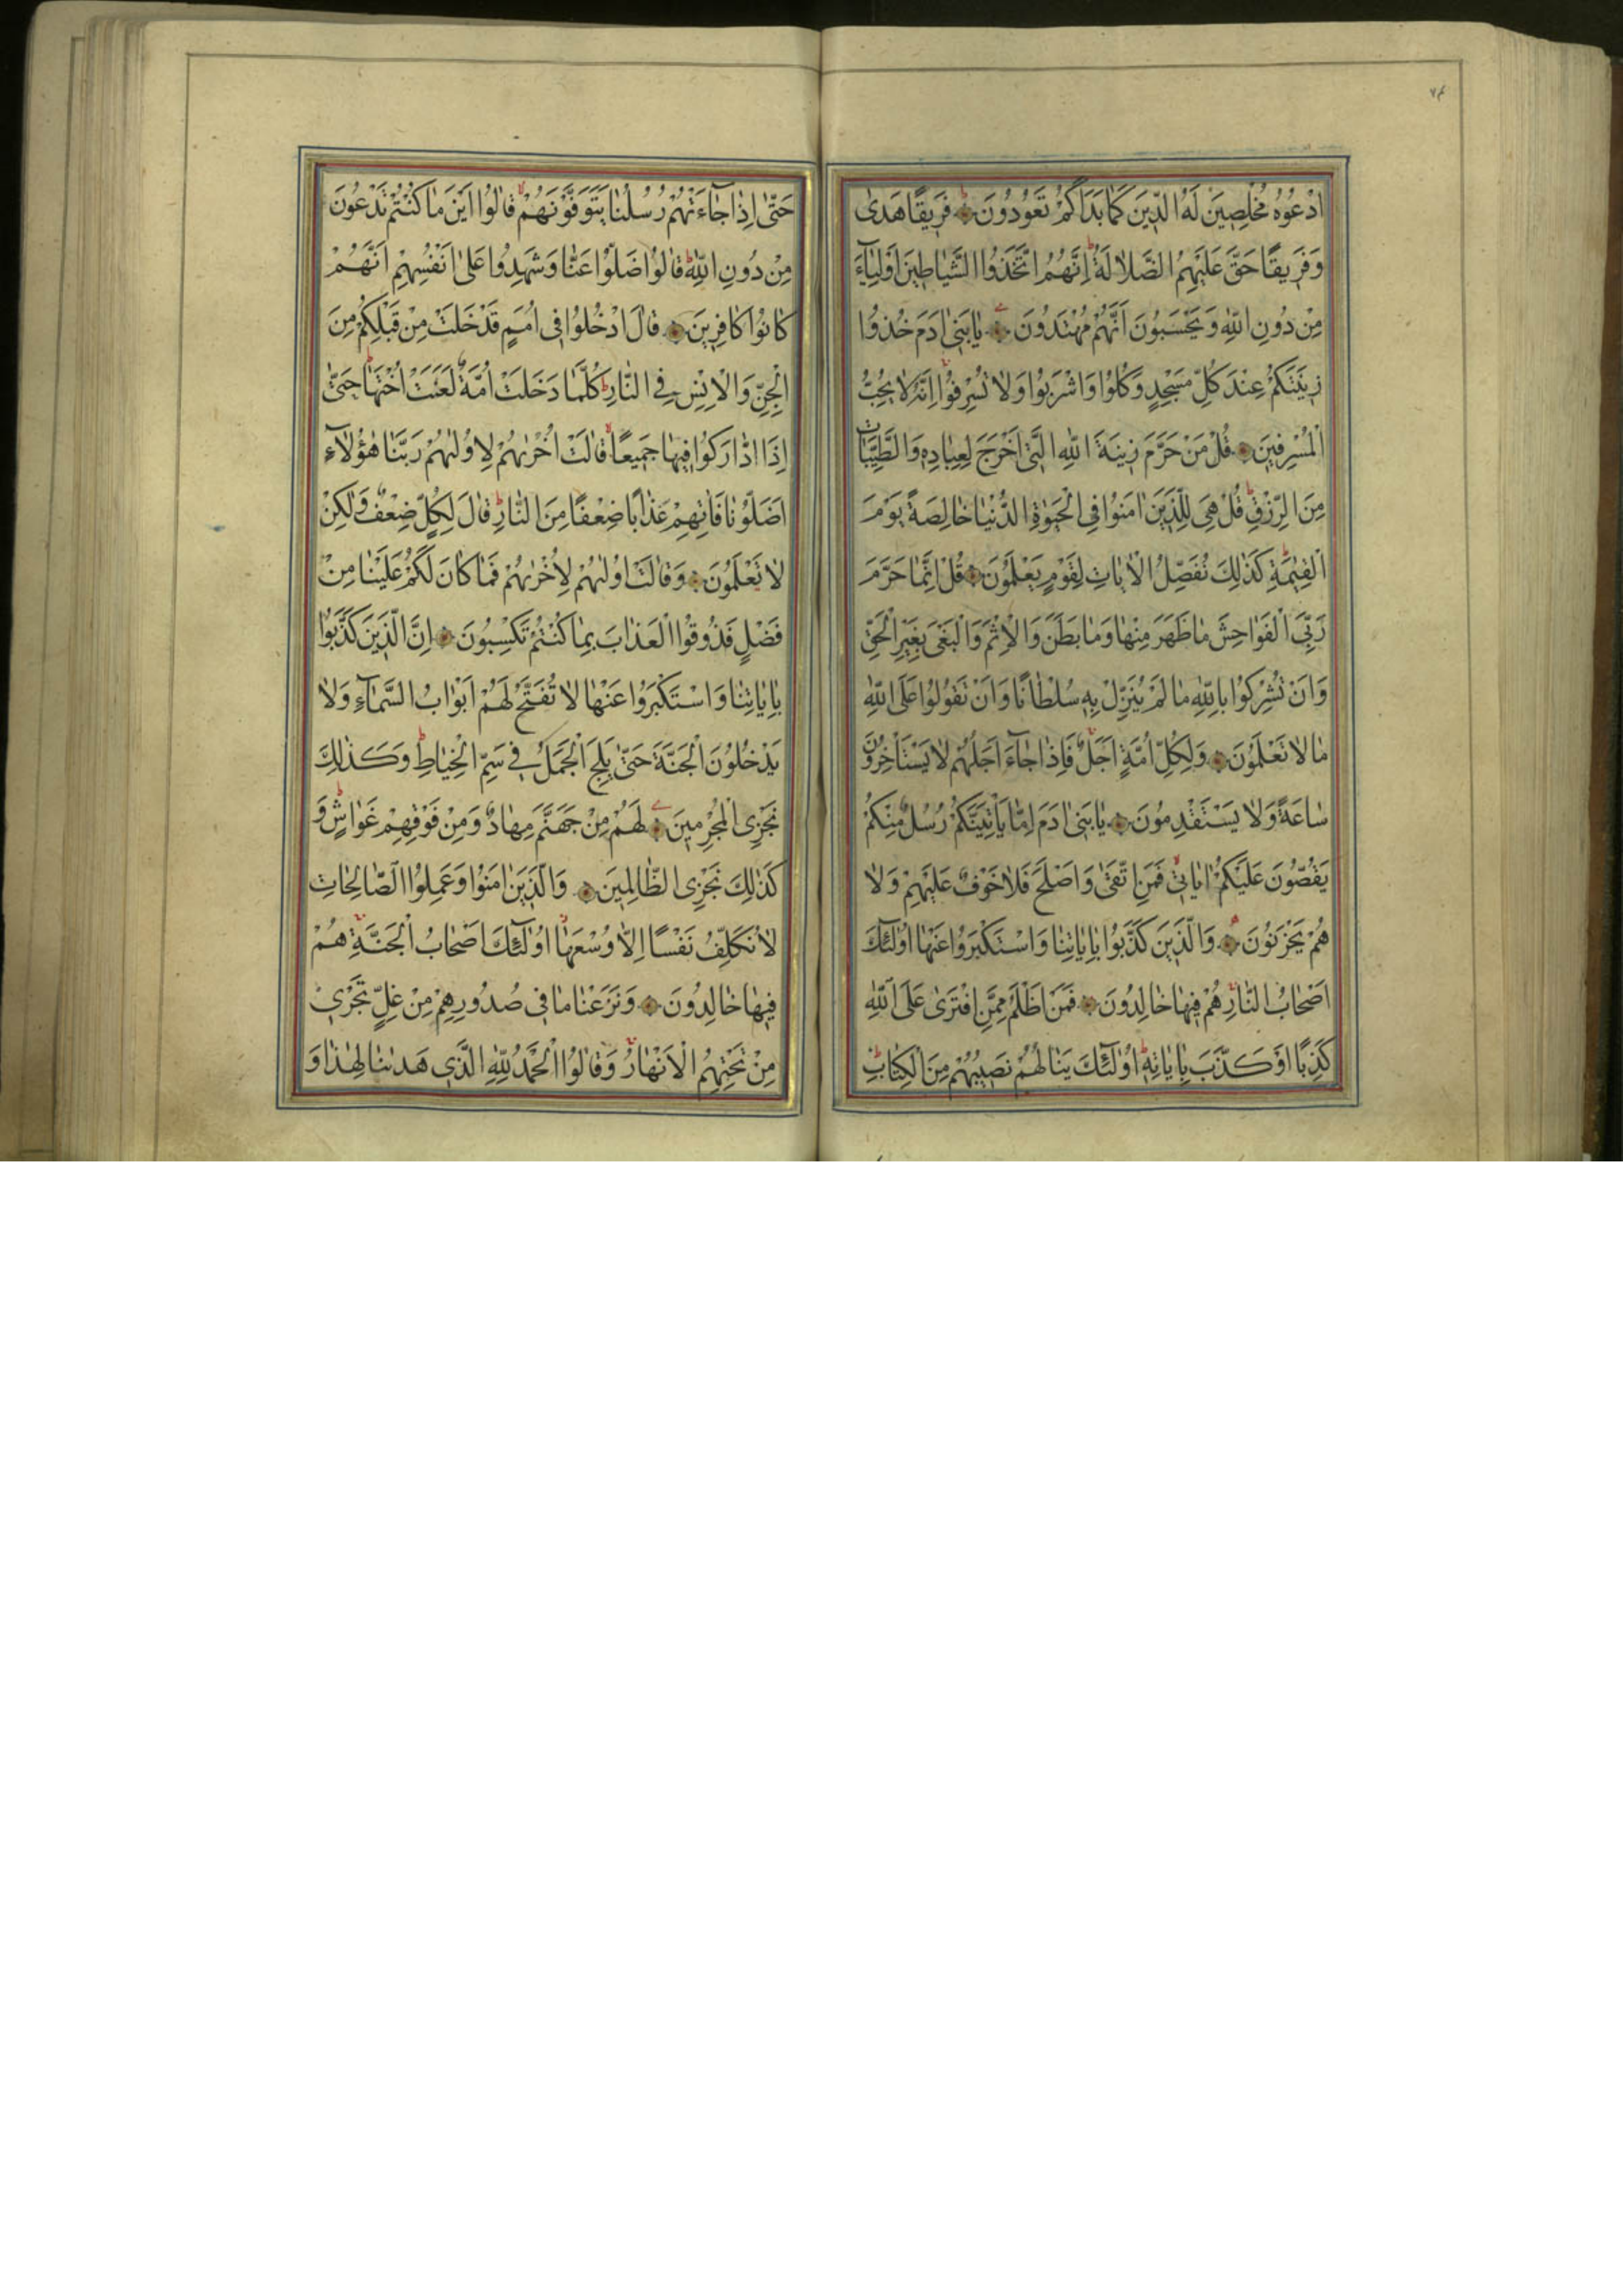 ٧٤
وَادْعُوهُ مُخْلِصِينَ لَهُ الدِّينَ كَمَا بَدَاَكُمْ تَعُودُونَ فَرِيقًا هَدٰى
وَفَرِيقًا حَقَّ عَلَيْهِمُ الضَّلَالَةُ اِنَّهُمُ اتَّخَذُوا الشَّيَاطِينَ اَوْلِيَاۤءَ
مِنْ دُونِ اللّٰهِ وَيَحْسَبُونَ اَنَّهُمْ مُهْتَدُونَ يَا بَنِى اٰدَمَ خُذُوا
زِينَتَكُمْ عِنْدَ كُلِّ مَسْجِدٍ وَكُلُوا وَاشْرَبُوا وَلَا تُسْرِفُوا اِنَّهُ لَا يُحِبُّ
الْمُسْرِفِينَ قُلْ مَنْ حَرَّمَ زِينَةَ اللّٰهِ الَّتِى اَخْرَجَ لِعِبَادِهِ وَالطَّيِّبَاتِ
مِنَ الرِّزْقِ قُلْ هِىَ لِلَّذِينَ اٰمَنُوا فِى الْحَيٰوةِ الدُّنْيَا خَالِصَةً يَوْمَ
الْقِيٰمَةِ كَذٰلِكَ نُفَصِّلُ الْاٰيَاتِ لِقَوْمٍ يَعْلَمُونَ قُلْ اِنَّمَا حَرَّمَ
رَبِّىَ الْفَوَاحِشَ مَا ظَهَرَ مِنْهَا وَمَا بَطَنَ وَالْاِثْمَ وَالْبَغْىَ بِغَيْرِ الْحَقِّ
وَاَنْ تُشْرِكُوا بِاللّٰهِ مَا لَمْ يُنَزِّلْ بِهِ سُلْطَانًا وَاَنْ تَقُولُوا عَلَى اللّٰهِ
مَا لَا تَعْلَمُونَ وَلِكُلِّ اُمَّةٍ اَجَلٌ فَاِذَا جَاۤءَ اَجَلُهُمْ لَا يَسْتَاْخِرُونَ
سَاعَةً وَلَا يَسْتَقْدِمُونَ يَا بَنِى اٰدَمَ اِمَّا يَاْتِيَنَّكُمْ رُسُلٌ مِنْكُمْ
يَقُصُّونَ عَلَيْكُمْ اٰيَاتِى فَمَنِ اتَّقٰى وَاَصْلَحَ فَلَا خَوْفٌ عَلَيْهِمْ وَلَا
هُمْ يَحْزَنُونَ وَالَّذِينَ كَذَّبُوا بِاٰيَاتِنَا وَاسْتَكْبَرُوا عَنْهَا اُولٰۤئِكَ
اَصْحَابُ النَّارِ هُمْ فِيهَا خَالِدُونَ فَمَنْ اَظْلَمُ مِمَّنِ افْتَرٰى عَلَى اللّٰهِ
كَذِبًا اَوْ كَذَّبَ بِاٰيَاتِهِ اُولٰۤئِكَ يَنَالُهُمْ نَصِيبُهُمْ مِنَ الْكِتَابِ
حَتّٰى اِذَا جَاۤءَتْهُمْ رُسُلُنَا يَتَوَفَّوْنَهُمْ قَالُوا اَيْنَ مَا كُنْتُمْ تَدْعُونَ
مِنْ دُونِ اللّٰهِ قَالُوا ضَلُّوا عَنَّا وَشَهِدُوا عَلٰى اَنْفُسِهِمْ اَنَّهُمْ
كَانُوا كَافِرِينَ قَالَ ادْخُلُوا فِى اُمَمٍ قَدْ خَلَتْ مِنْ قَبْلِكُمْ مِنَ
الْجِنِّ وَالْاِنْسِ فِى النَّارِ كُلَّمَا دَخَلَتْ اُمَّةٌ لَعَنَتْ اُخْتَهَا حَتّٰى
اِذَا ادَّارَكُوا فِيهَا جَمِيعًا قَالَتْ اُخْرٰيهُمْ لِاُولٰيهُمْ رَبَّنَا هٰۤؤُلَاۤءِ
اَضَلُّونَا فَاٰتِهِمْ عَذَابًا ضِعْفًا مِنَ النَّارِ قَالَ لِكُلٍّ ضِعْفٌ وَلٰكِنْ
لَا تَعْلَمُونَ وَقَالَتْ اُولٰيهُمْ لِاُخْرٰيهُمْ فَمَا كَانَ لَكُمْ عَلَيْنَا مِنْ
فَضْلٍ فَذُوقُوا الْعَذَابَ بِمَا كُنْتُمْ تَكْسِبُونَ اِنَّ الَّذِينَ كَذَّبُوا
بِاٰيَاتِنَا وَاسْتَكْبَرُوا عَنْهَا لَا تُفَتَّحُ لَهُمْ اَبْوَابُ السَّمَاۤءِ وَلَا
يَدْخُلُونَ الْجَنَّةَ حَتّٰى يَلِجَ الْجَمَلُ فِى سَمِّ الْخِيَاطِ وَكَذٰلِكَ
نَجْزِى الْمُجْرِمِينَ لَهُمْ مِنْ جَهَنَّمَ مِهَادٌ وَمِنْ فَوْقِهِمْ غَوَاشٍ وَ
كَذٰلِكَ نَجْزِى الظَّالِمِينَ وَالَّذِينَ اٰمَنُوا وَعَمِلُوا الصَّالِحَاتِ
لَا نُكَلِّفُ نَفْسًا اِلَّا وُسْعَهَا اُولٰۤئِكَ اَصْحَابُ الْجَنَّةِ هُمْ
فِيهَا خَالِدُونَ وَنَزَعْنَا مَا فِى صُدُورِهِمْ مِنْ غِلٍّ تَجْرِى
مِنْ تَحْتِهِمُ الْاَنْهَارُ وَقَالُوا الْحَمْدُ لِلّٰهِ الَّذِى هَدٰينَا لِهٰذَا وَ